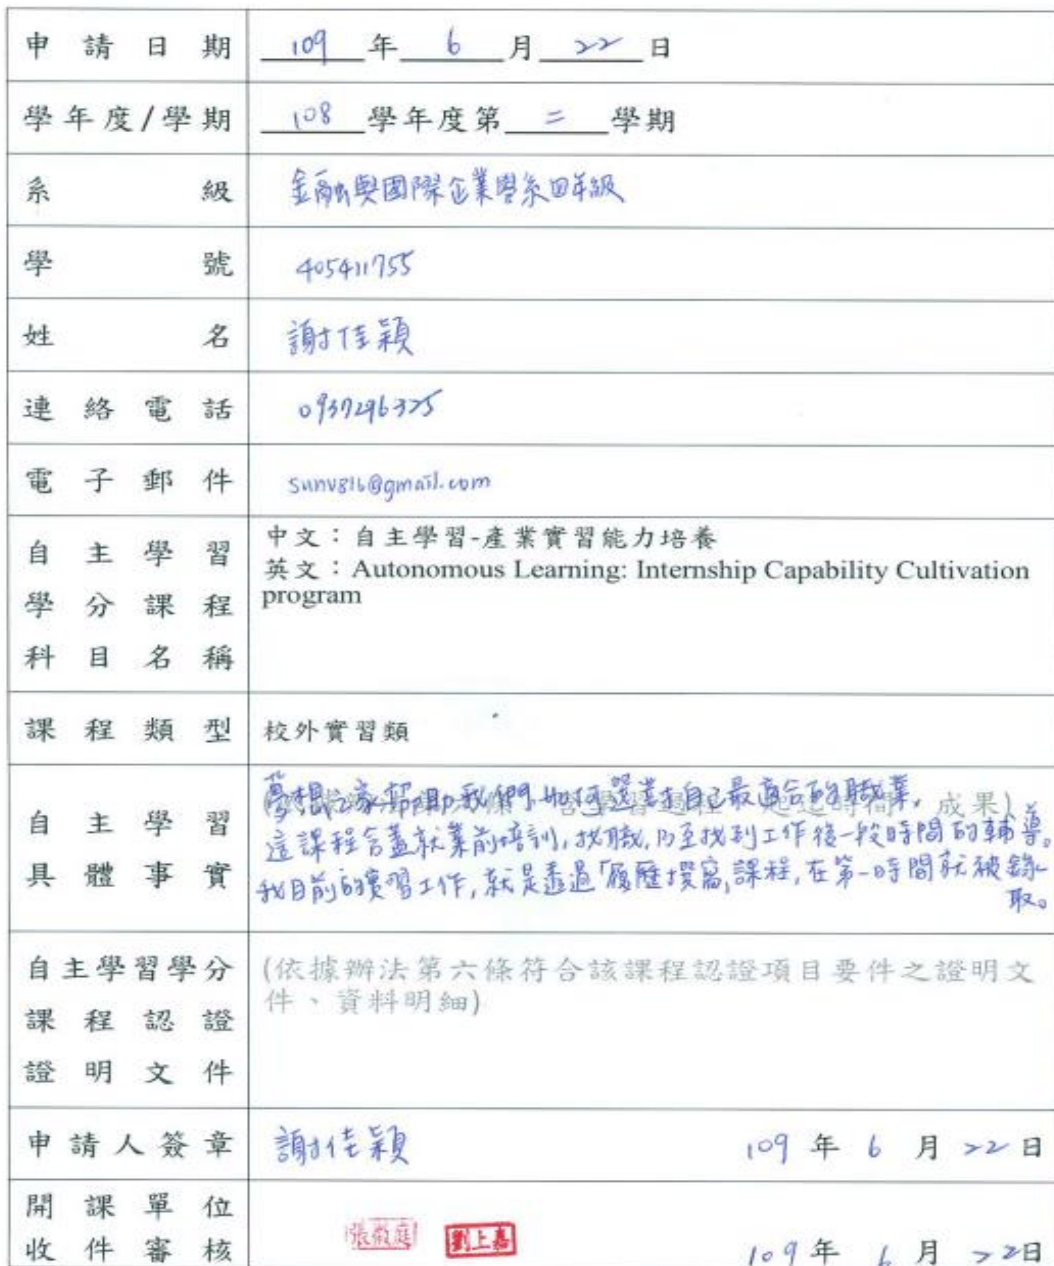 申請日期 109 年 6 月 22 日
學年度/學期 108 學年度第 二 學期
系級 金融與國際企業學系四年級
學號 405411755
姓名 謝佳穎
連絡電話 0937296325
電子郵件 sunv816@gmail.com
自主學習 中文：自主學習-產業實習能力培養
學分課程 英文：Autonomous Learning: Internship Capability Cultivation
科目名稱 program
課程類型 校外實習類
自主學習 夢想之家幫助我們如何選對自己最適合的職業。
具體事實 這課程含蓋就業前培訓,找職,乃至找到工作後一段時間的輔導。
我目前的實習工作,就是透過「履歷撰寫」課程,在第一時間就被錄
取。
自主學習學分 (依據辦法第六條符合該課程認證項目要件之證明文
課程認證 件、資料明細)
證明文件
申請人簽章 謝佳穎 109 年 6 月 22 日
開課單位 張 庭 劉上嘉
收件審核 109 年 6 月 22 日